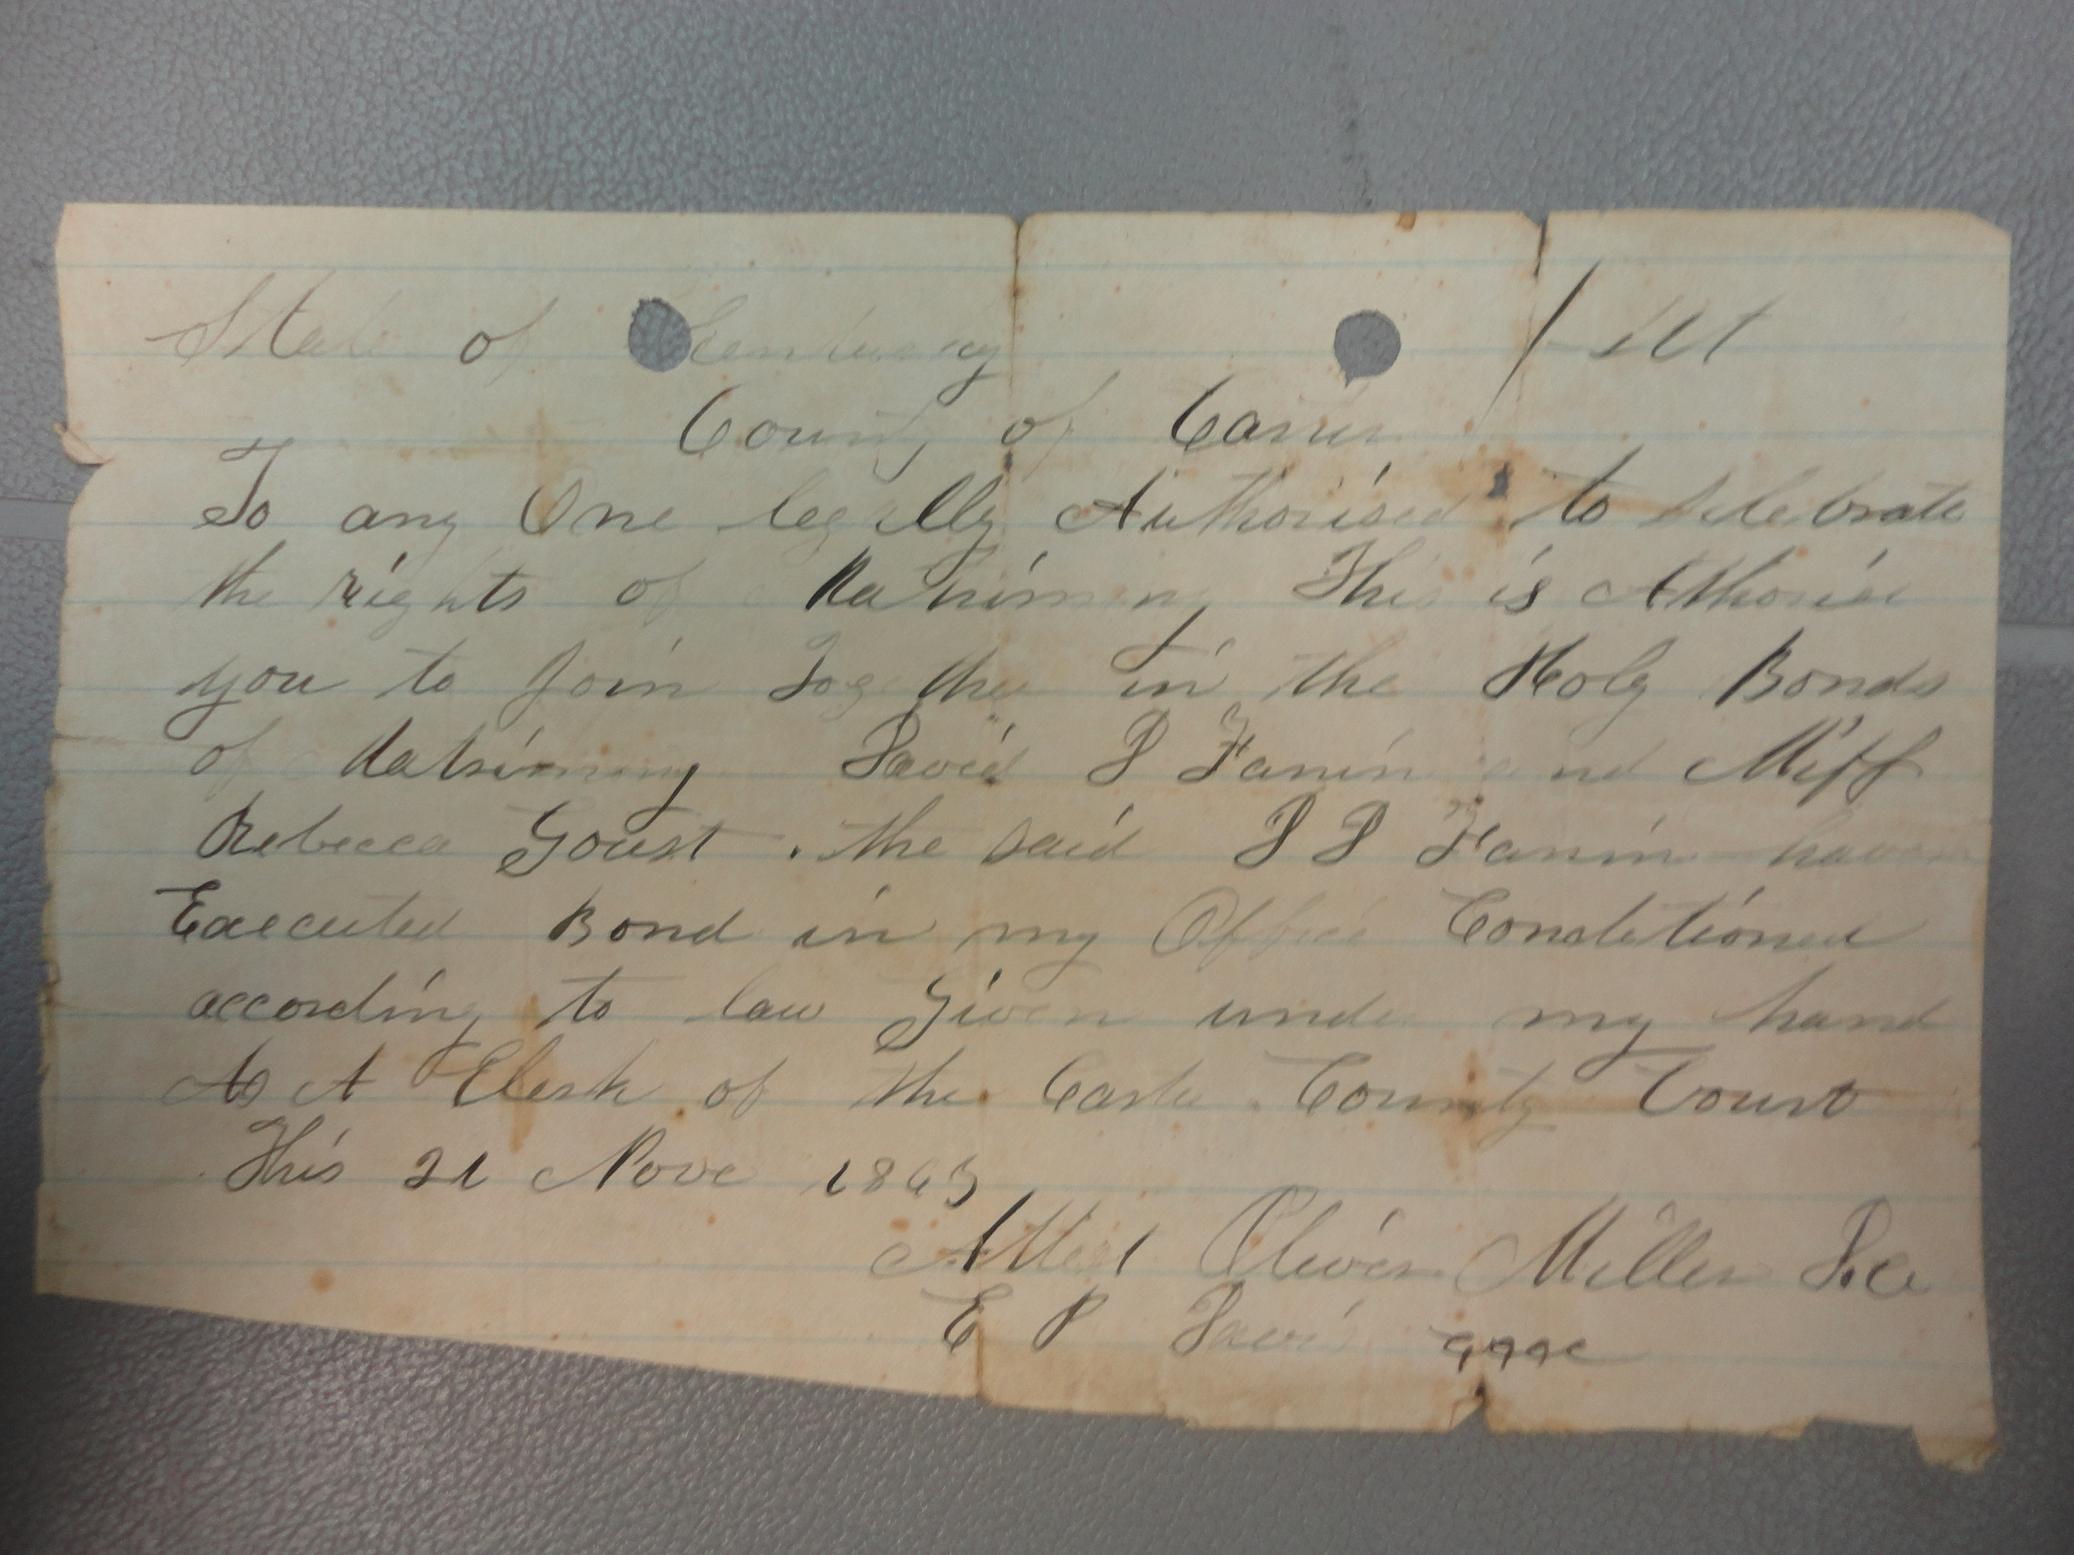 State of Kentucky / Sct
County of Carter
To any One legally Authorised to Selebrate
the rights of Matrimony This is Athorise
you to Join Together in the Holy Bonds
of Matrimony David D Fanin and Miss
Rebecca Goust . the said D D Fanin have
Executed Bond in my Office Conditioned
according to law Given under my hand
As A Clerk of the Carter County Court
This 21 Nove 1865
Attest Oliver Miller D.C
E P Davis